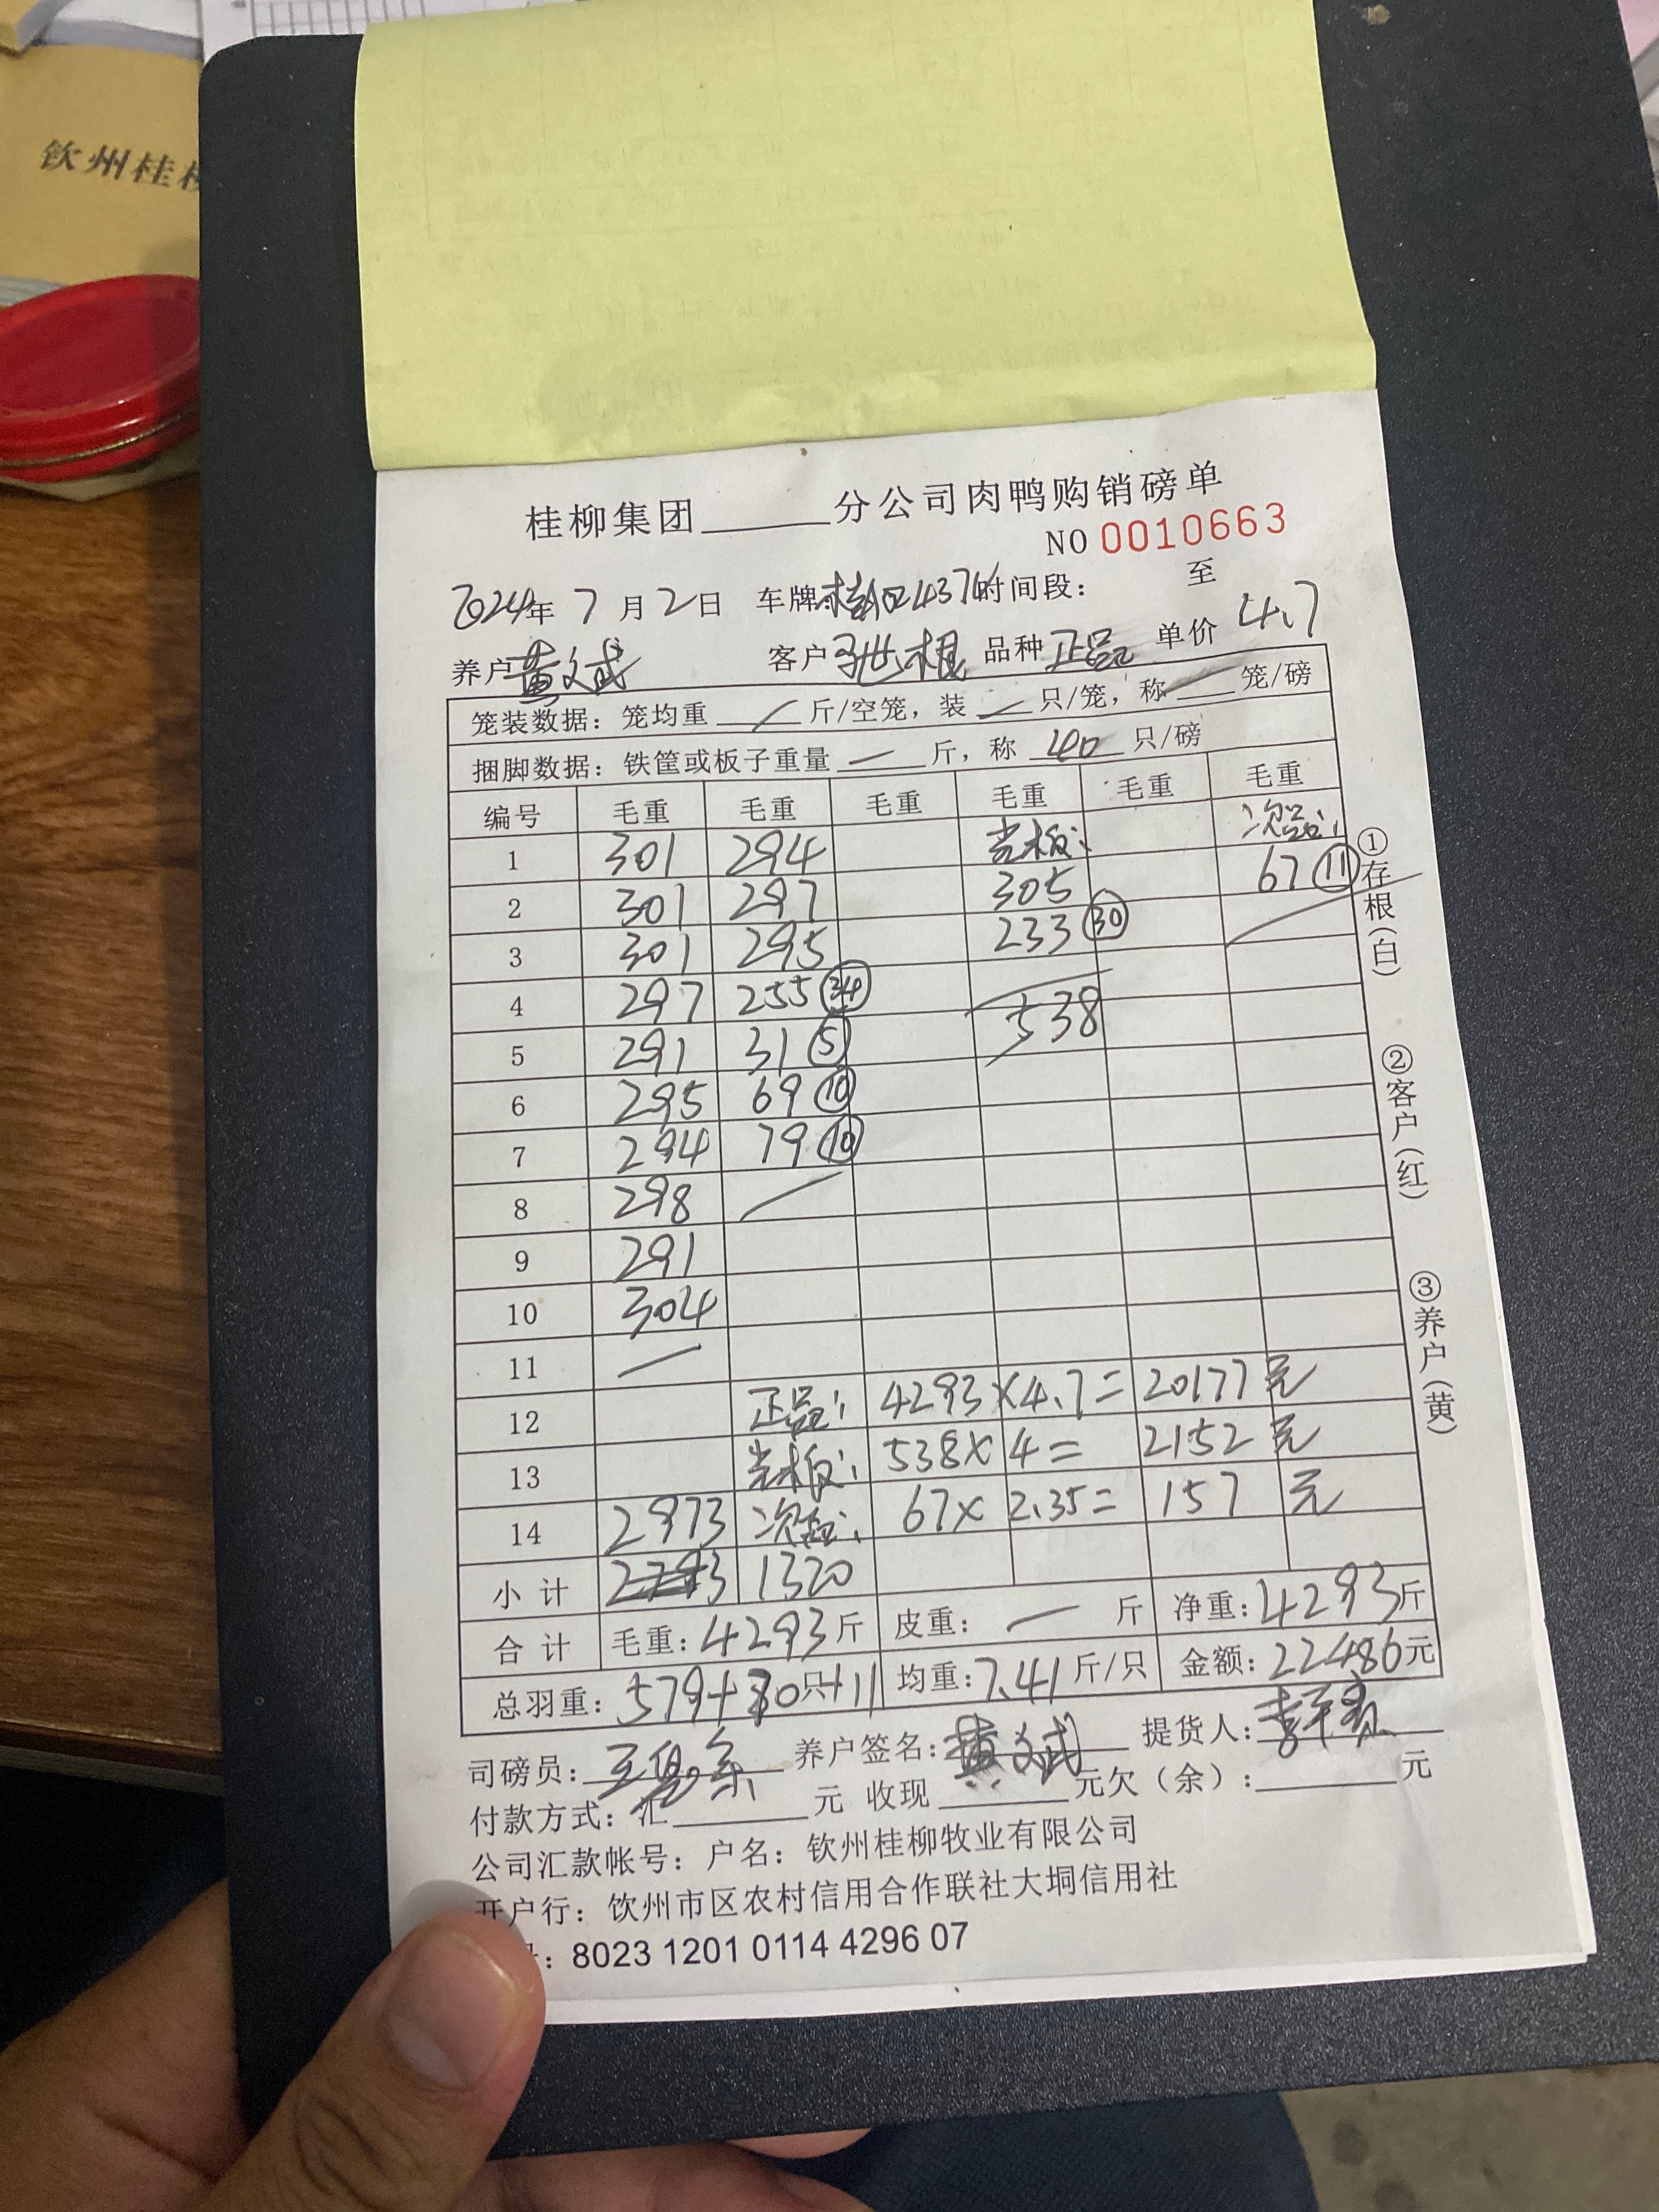 钦州桂
桂柳集团______分公司肉鸭购销磅单
NO 0010663
2024年 7月2日 车牌: 时间段: 至
养户黄文斌 客户 品种正品 单价 4.7
笼装数据: 笼均重 / 斤/空笼, 装 / 只/笼, 称 / 笼/磅
捆脚数据: 铁筐或板子重量 一 斤, 称 40 只/磅
编号 毛重 毛重 毛重 毛重 毛重 毛重
1 301 294 次品:
2 301 297 305 67 ⑪
3 301 295 233 ㉚
4 297 255 ㉞
5 291 31 ⑤ 538
6 295 69 ⑩
7 294 79 ⑩
8 298
9 291
10 304
11
12 正品: 4293×4.7= 20177元
13 538×4= 2152元
14 2973 次品: 67×2.35= 157元
小计 1320
合计 毛重: 4293斤 皮重: 一 斤 净重: 4293斤
总羽重: 579+30只+11 均重: 7.41斤/只 金额: 22486元
司磅员: 养户签名: 黄文斌 提货人:
付款方式: 汇______元 收现______元欠(余):______元
公司汇款帐号: 户名: 钦州桂柳牧业有限公司
开户行: 钦州市区农村信用合作联社大垌信用社
: 8023 1201 0114 4296 07
①存根(白) ②客户(红) ③养户(黄)